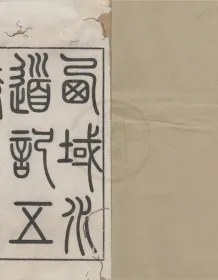 西域水
道記五